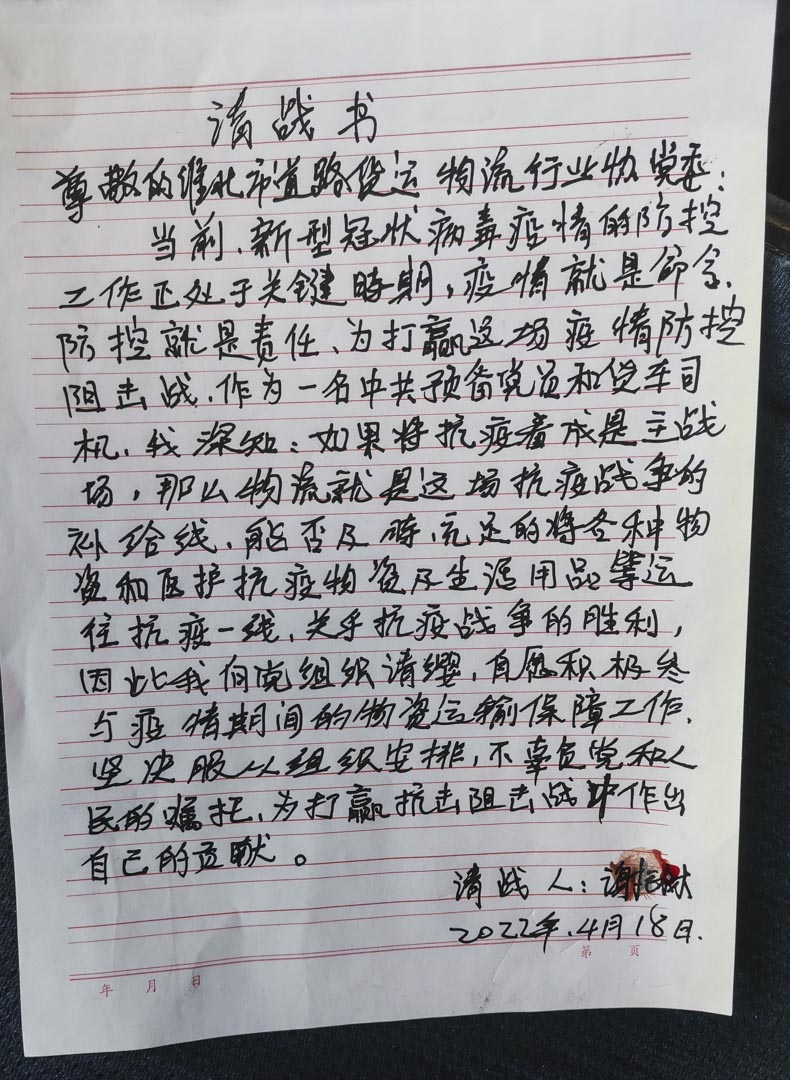 请战书
尊敬的淮北市道路货运物流行业协党委:
当前、新型冠状病毒疫情的防控
工作正处于关键時期,疫情就是命令、
防控就是责任、为打赢这场疫情防控
阻击战、作为一名中共预备党员和货车司
机、我深知:如果将抗疫看成是主战
场,那么物流就是这场抗疫战争的
补给线、能否及時、充足的将各种物
资和医护抗疫物资及生活用品等运
往抗疫一线、关乎抗疫战争的胜利,
因此我向党组织请缨,自愿积极参
与疫情期间的物资运输保障工作、
坚决服从组织安排,不辜负党和人
民的嘱托、为打赢抗击阻击战中作出
自己的贡献。
请战人:谢
2022年.4月18日.
第 页
年 月 日